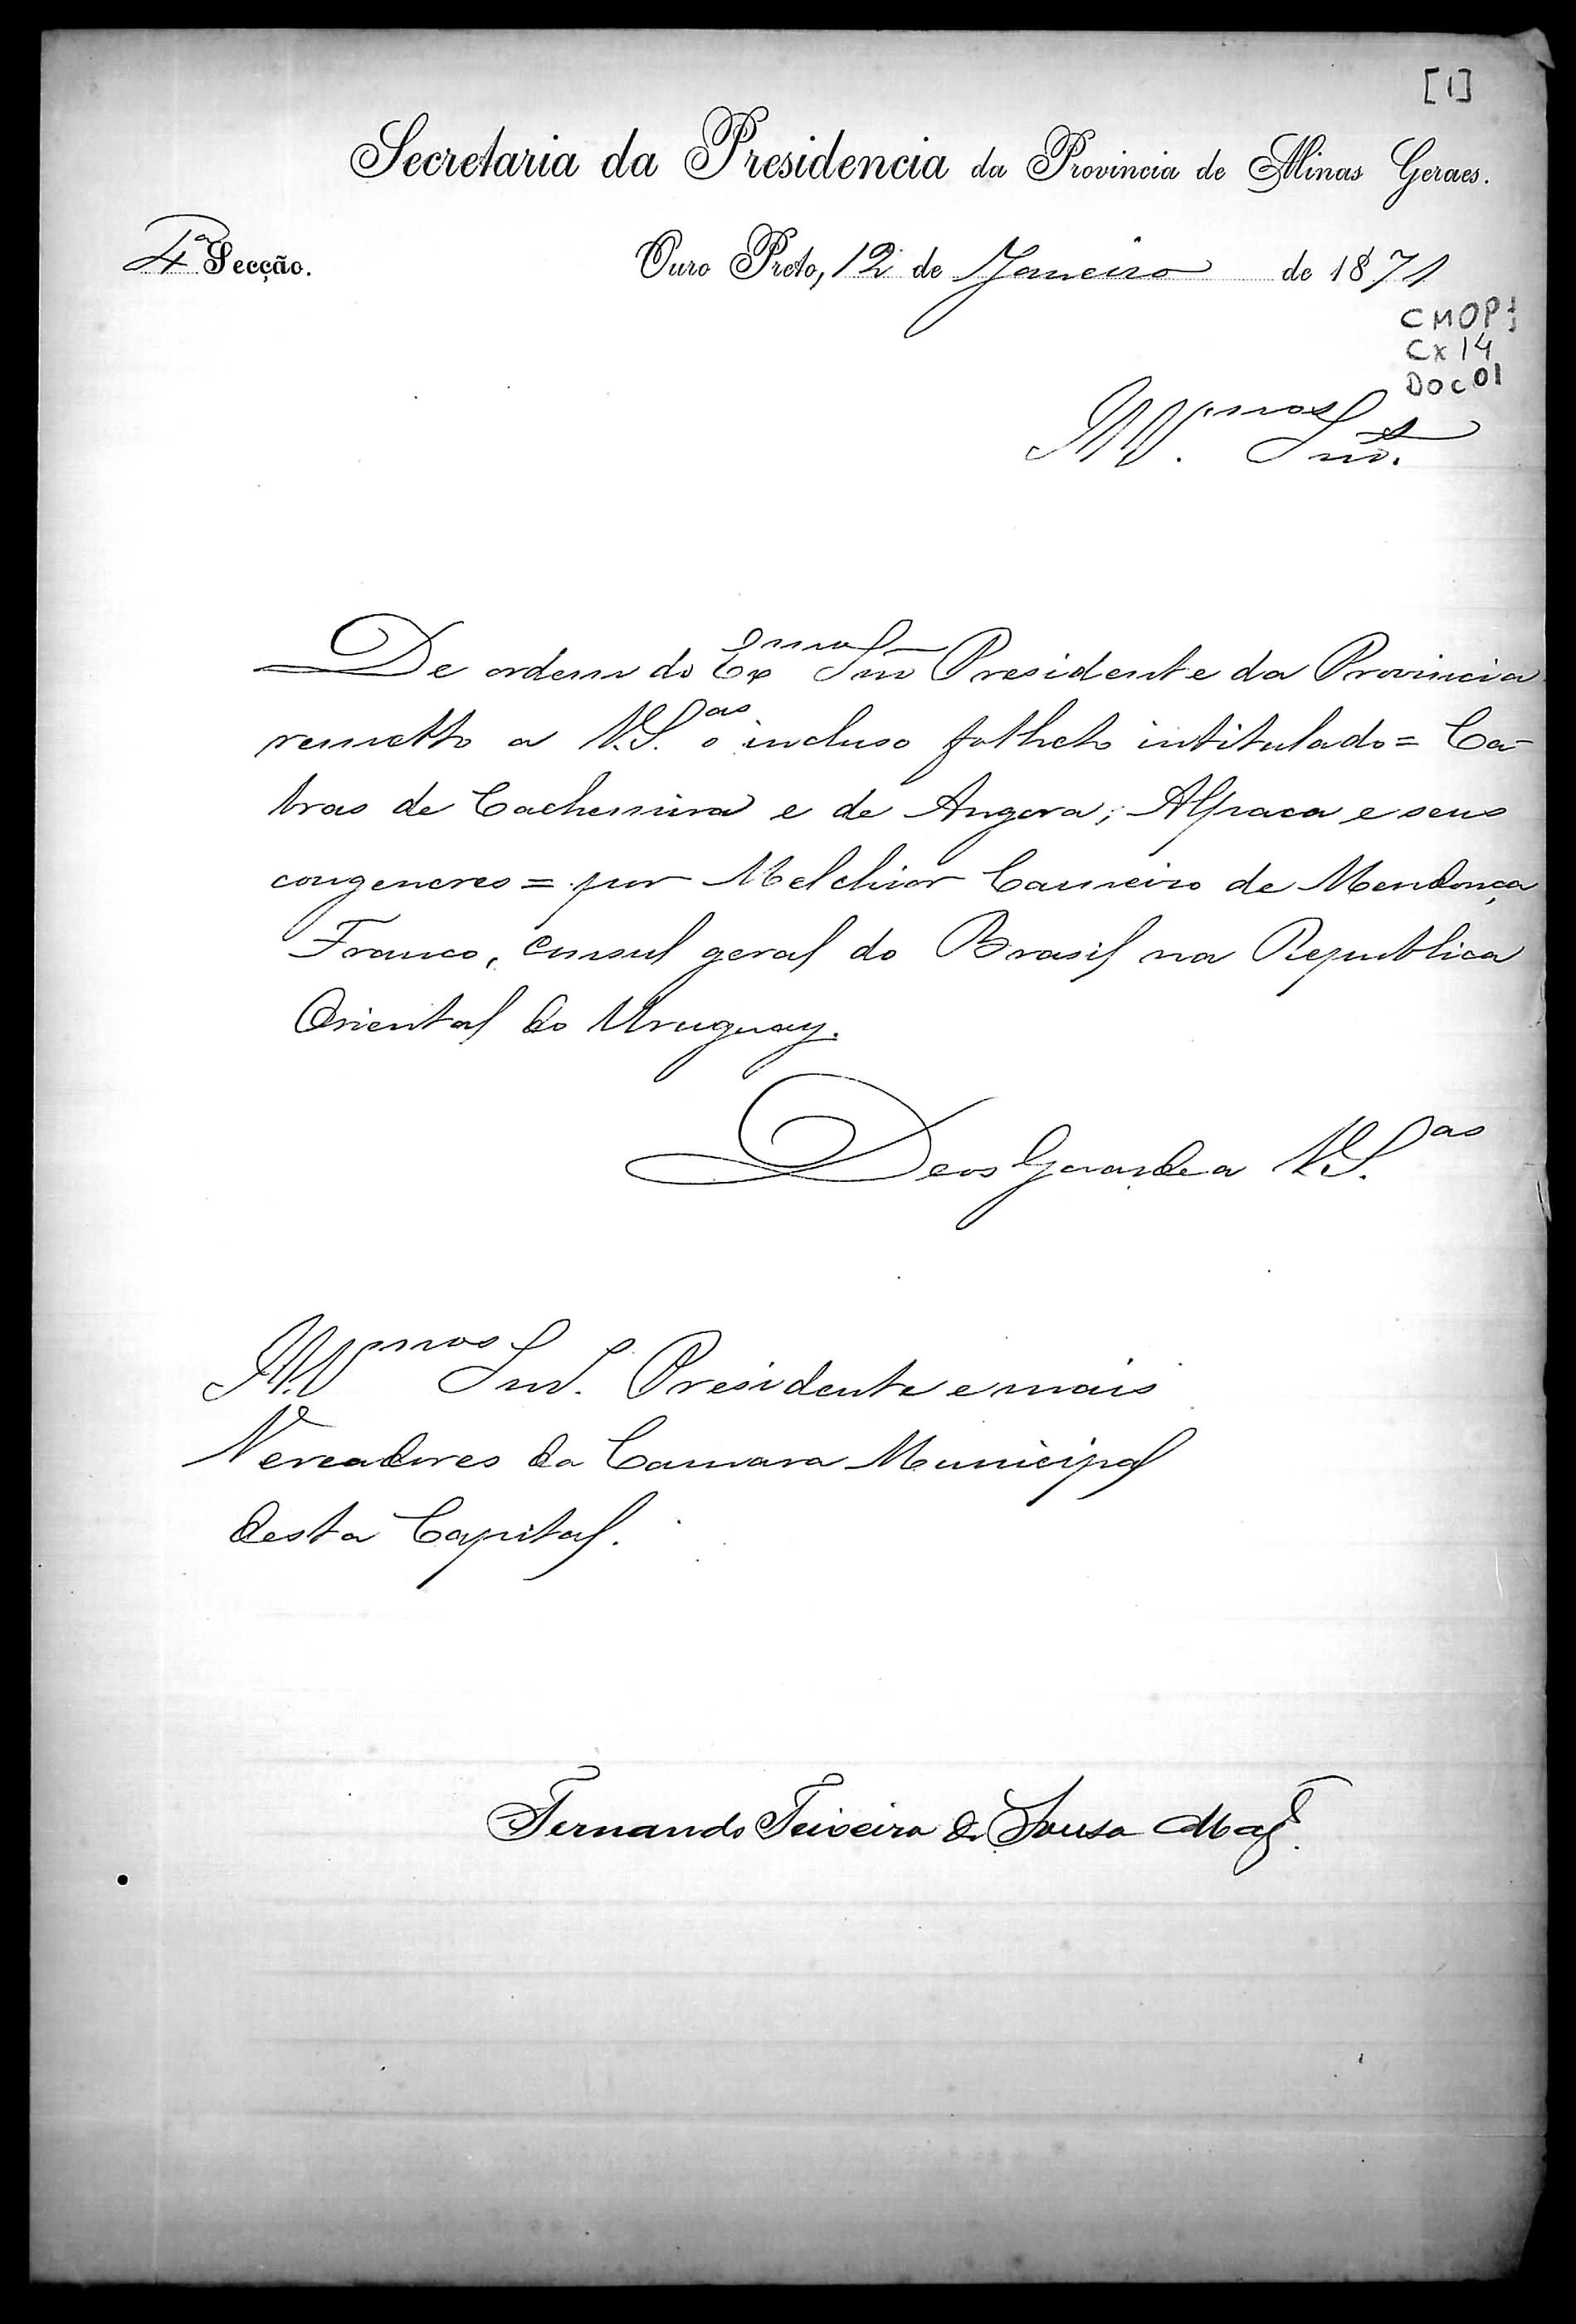 [1]
Secretaria da Presidencia da Provincia de Minas Geraes.
4ª Secção.
Ouro Preto, 12 de Janeiro de 1871
CMOP
Cx 14
DOC 01
Illmos Snrs.
De ordem do Exmo Snr Presidente da Provincia
remetto a V.Sas o incluso folheto intitulado = Ca-
bras de Cachemira e de Angora; Alpaca e seus
congeneres = por Melchior Carneiro de Mendonça
Franco, consul geral do Brasil na Republica
Oriental do Uruguay.
Deos Guarde a V.Sas
Illmos Snrs. Presidente e mais
Vereadores da Camara Municipal
desta Capital.
Fernando Teixeira de Sousa Mages.